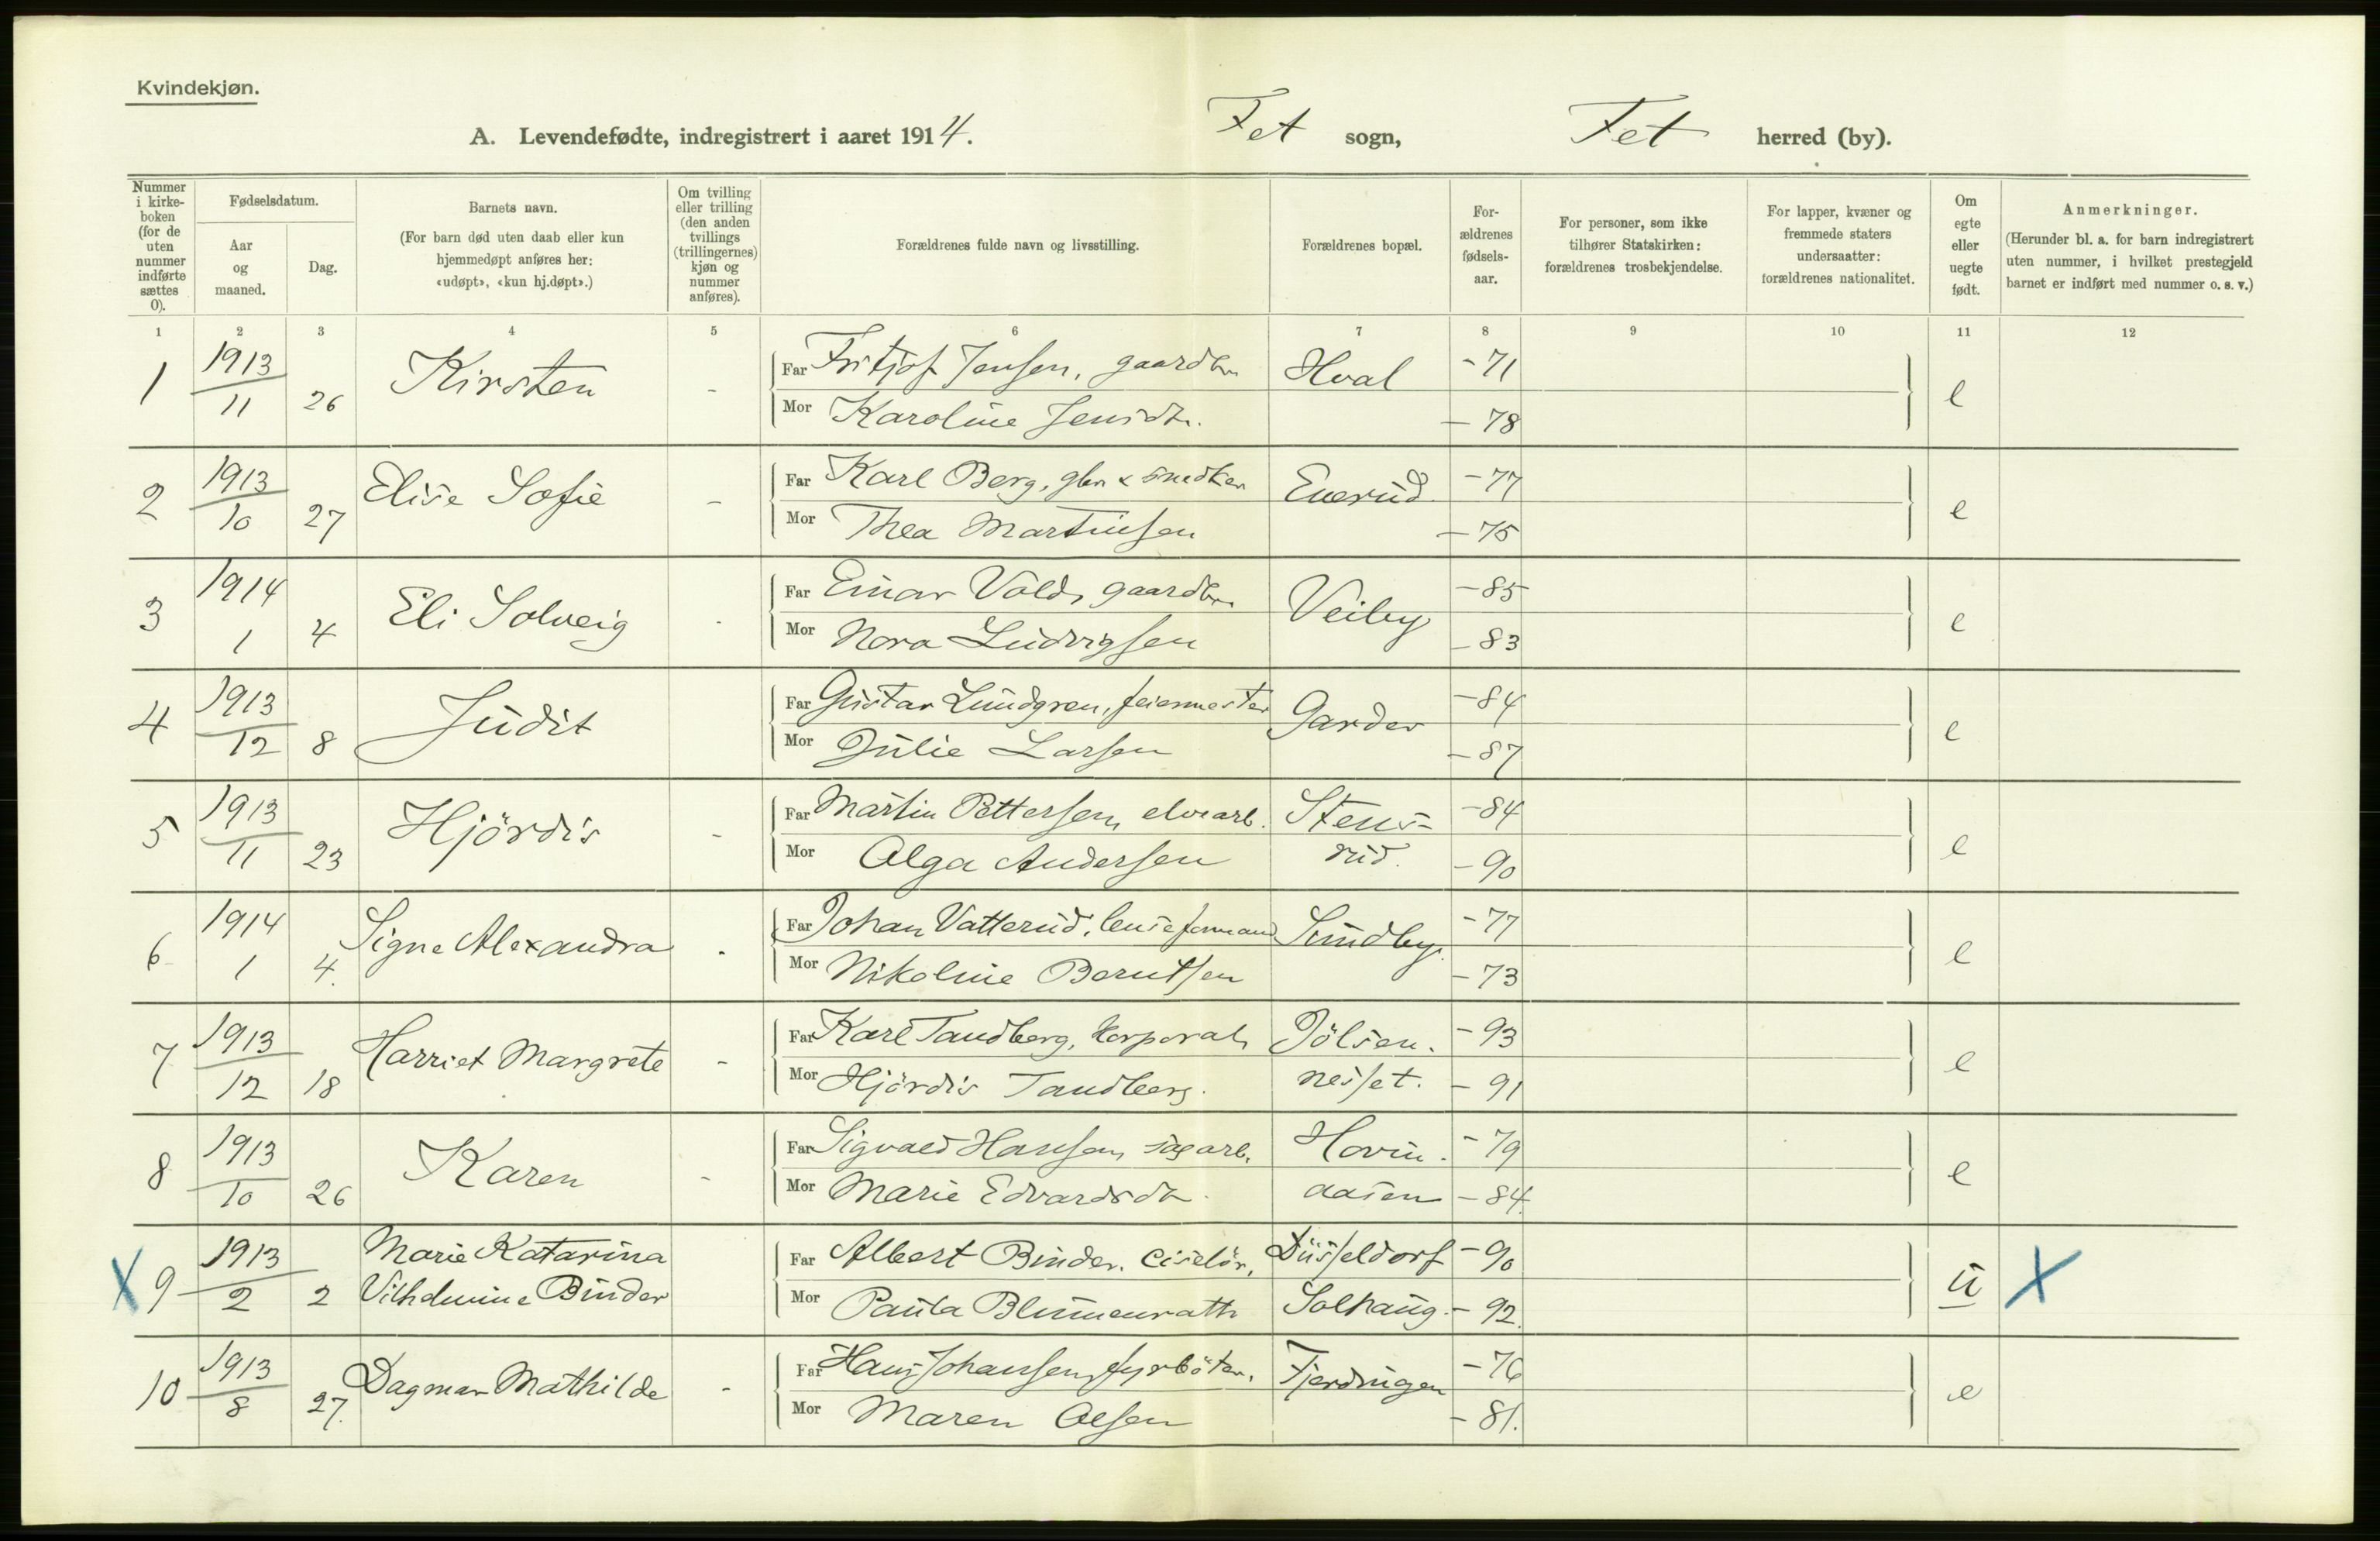 Kvindekjøn.
A. Levendefødte, indregistrert i aaret 1914. Fet sogn, Fet herred (by).
Nummer i kirke-boken (for de uten nummer indførte sættes 0).
Fødselsdatum.
Aar og maaned.
Dag.
Barnets navn.
(For barn død uten daab eller kun hjemmedøpt anføres her: «udøpt», «kun hj.døpt».)
Om tvilling eller trilling (den anden tvillings (trillingernes) kjøn og nummer anføres).
Forældrenes fulde navn og livsstilling.
Forældrenes bopæl.
For-ældrenes fødsels-aar.
For personer, som ikke tilhører Statskirken: forældrenes trosbekjendelse.
For lapper, kvæner og fremmede staters undersaatter: forældrenes nationalitet.
Om egte eller uegte født.
Anmerkninger.
(Herunder bl. a. for barn indregistrert uten nummer, i hvilket prestegjeld barnet er indført med nummer o. s. v.)
1 2 3 4 5 6 7 8 9 10 11 12
1 1913 11 26 Kirsten - Far Fritjof Jensen, gaardbr. Hval -71 e
Mor Karoline Jensdtr. -78
2 1913 10 27 Elise Sofie - Far Karl Berg, gbr & snedker Enerud -77 e
Mor Thea Martinsen -75
3 1914 1 4 Eli Solveig - Far Einar Vold, gaardbr. Veiby -85 e
Mor Nora Ludvigsen -83
4 1913 12 8 Judit Far Gustav Lundgren, feiermester Garder -84 e
Mor Julie Larsen -87
5 1913 11 23 Hjördis - Far Martin Pettersen, elvearb. Stens- -84 e
Mor Olga Andersen rud. -90
6 1914 1 4. Signe Alexandra - Far Johan Vatterud, lenseformand Sundby. -77 e
Mor Nikoline Berntsen -73
7 1913 12 18 Harriet Margrete - Far Karl Tandberg, korporal, Jölsen- -93 e
Mor Hjördis Tandberg. nesset. -91
8 1913 10 26 Karen - Far Sigvald Hansen, sagarb. Hovin- -79 e
Mor Marie Edvardsdtr. aasen -84.
X 9 1913 2 2 Marie Katarina Far Albert Binder. Ciselör, Düsseldorf -90 u X
Vilhelmine Binder Mor Paula Blumenrath Solhaug. -92.
10 1913 8 27. Dagmar Mathilde - Far Hans Johansen, fyrböter, Fjerdingen -76 e
Mor Maren Olsen -81.